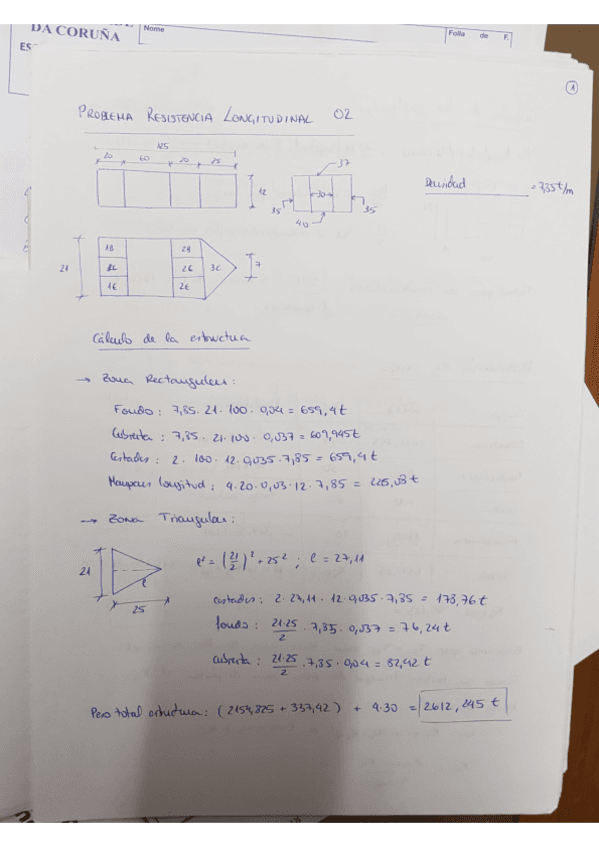 DA CORUÑA
Nome
Folla de F.
ES
1
PROBLEMA RESISTENCIA LONGITUDINAL 02
125
20 60 20 25
12
37
30
35
35
40
Densidad = 7,85 t/m
21
1B 2B
1C 2C 3C
1E 2E
7
Cálculo de la estructura
→ Zona Rectangular:
Fondo: 7,85 · 21 · 100 · 0,04 = 659,4 t
Cubierta: 7,85 · 21 · 100 · 0,037 = 609,945 t
Costados: 2 · 100 · 12 · 0,035 · 7,85 = 659,4 t
Mamparos longitud: 4 · 20 · 0,03 · 12 · 7,85 = 226,08 t
→ Zona Triangular:
21
l
25
l² = (21/2)² + 25² ; l = 27,11
costados: 2 · 27,11 · 12 · 0,035 · 7,85 = 178,76 t
fondo: 21·25/2 · 7,85 · 0,037 = 76,24 t
cubierta: 21·25/2 · 7,85 · 0,04 = 82,42 t
Peso total estructura: (2154,825 + 337,42) + 4·30 = 2612,245 t